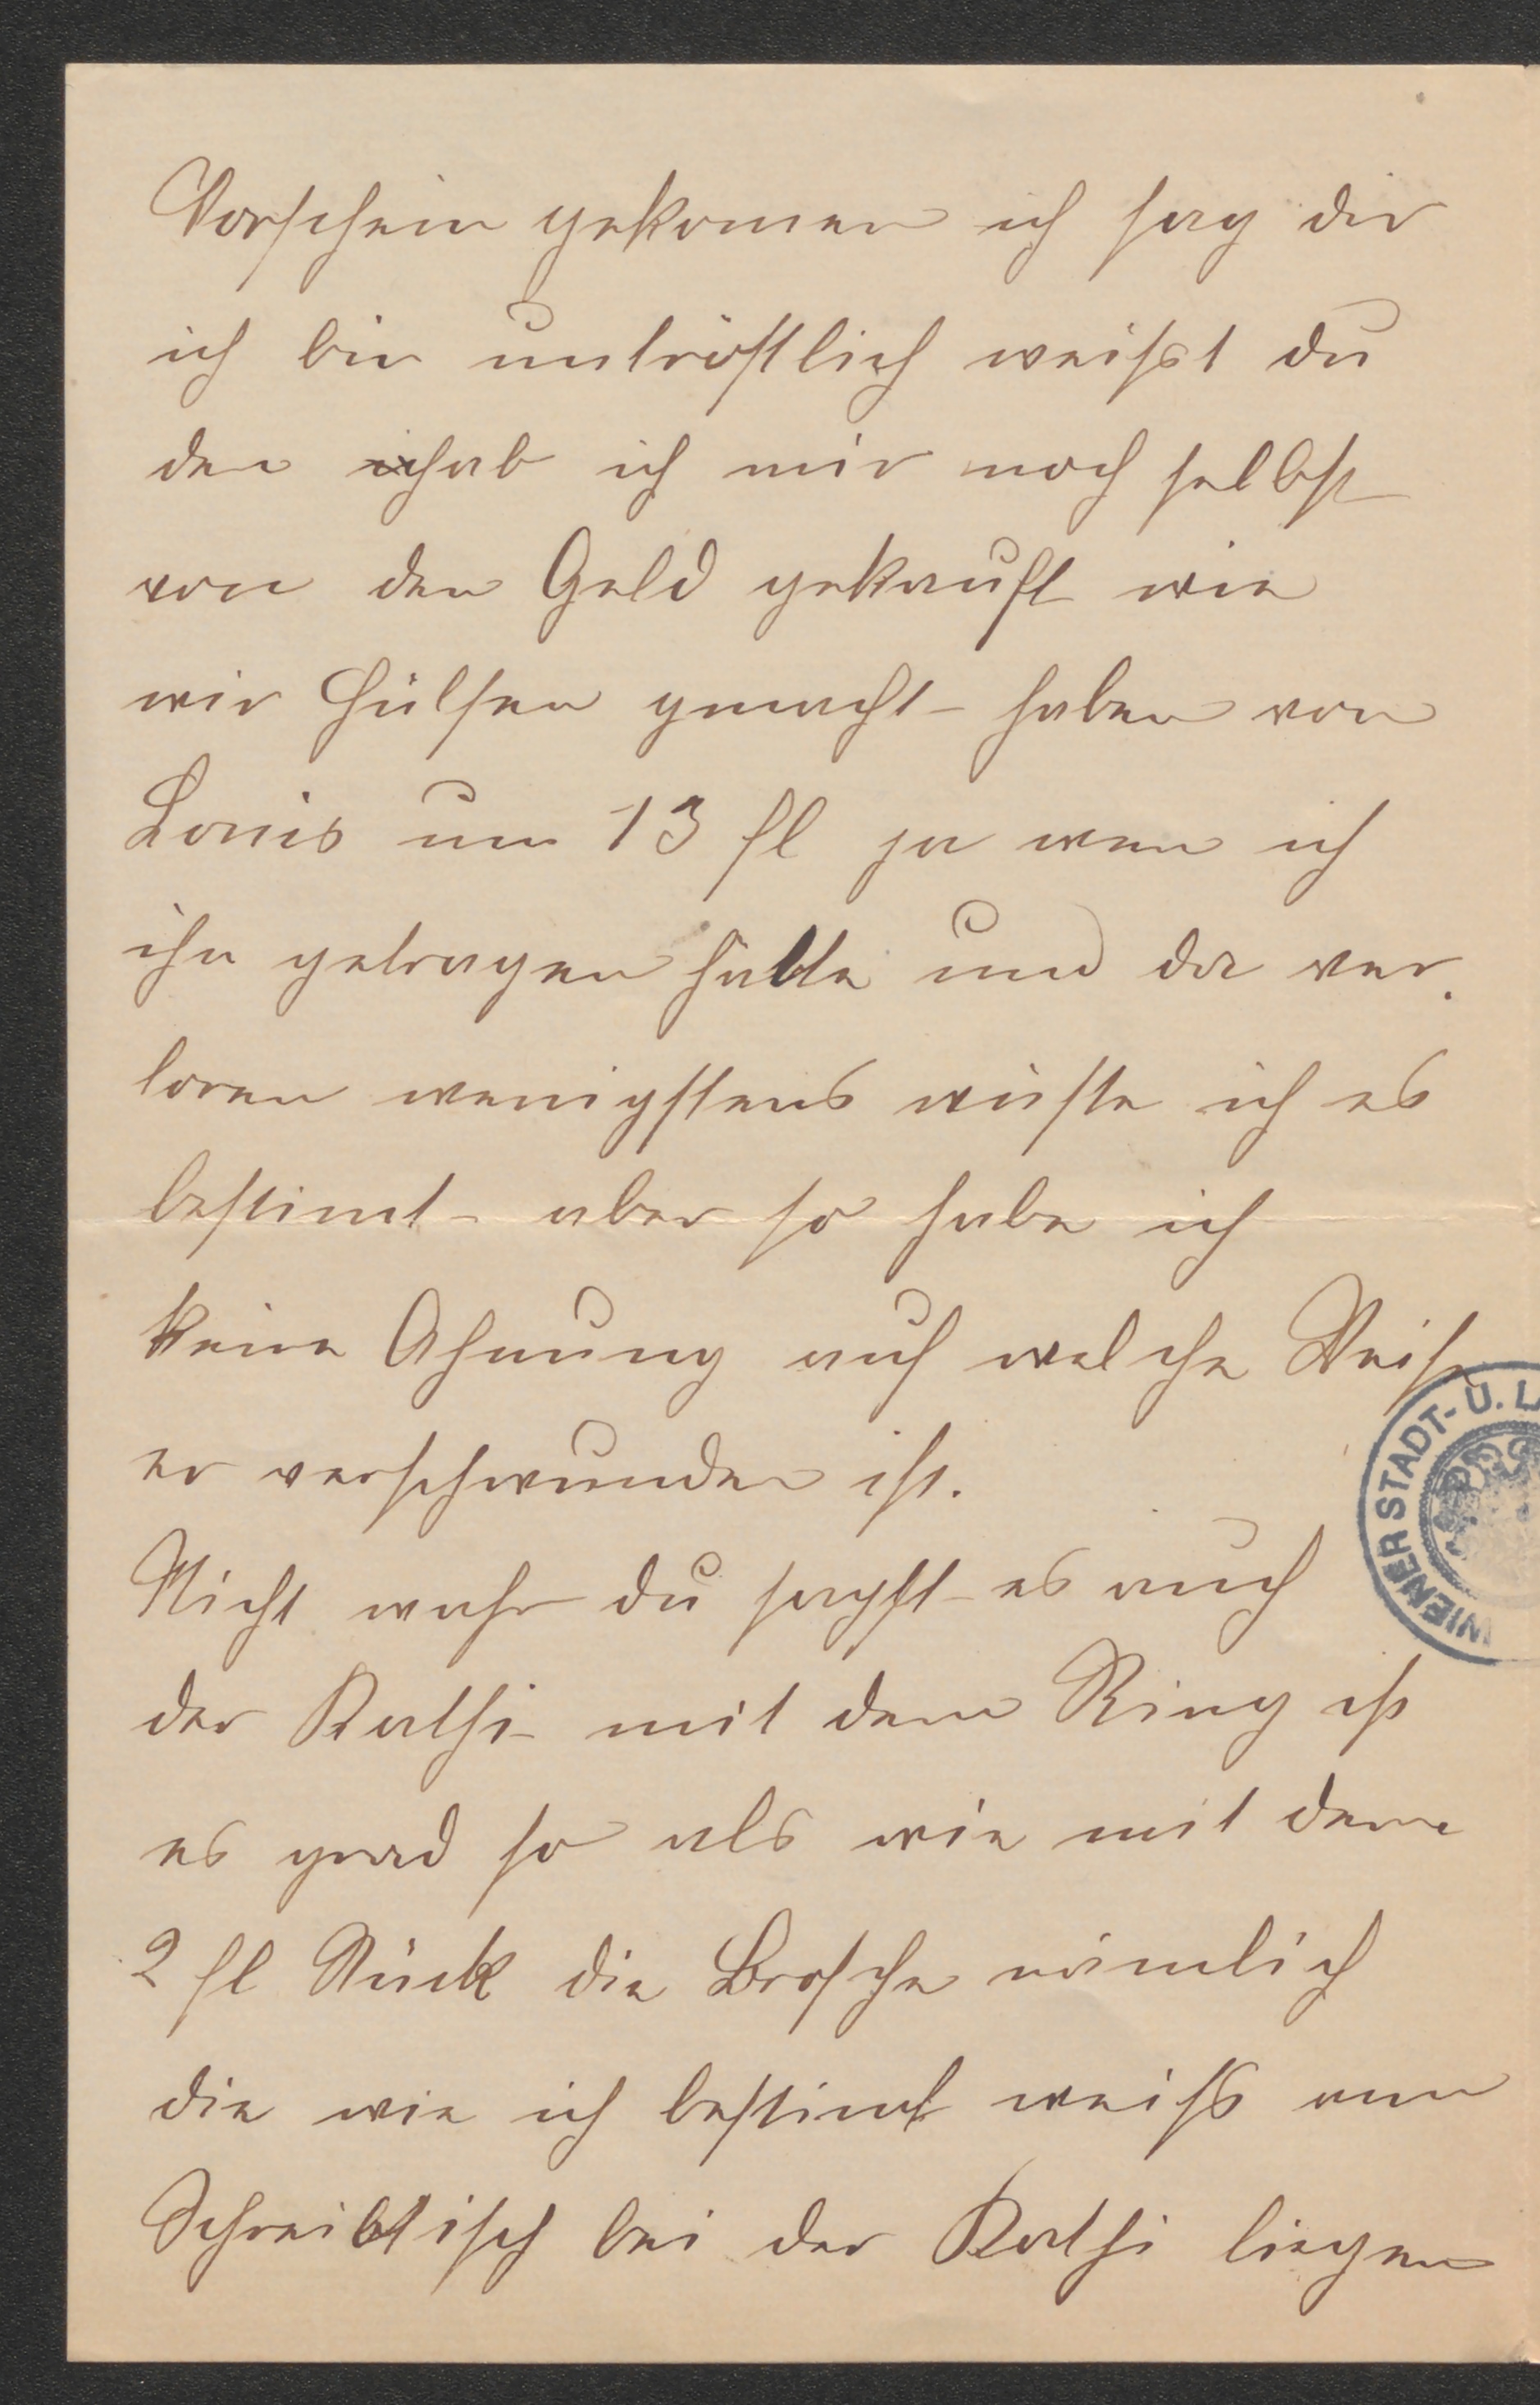 Vorschein gekomen ich sag dir
ich bin untröstlich weißt du
den hab ich mir noch selbst
von den Geld gekauft wie
wir Hülsen gemacht haben von
Louis um 13 fl ja wen ich
ihn getragen hätte und da ver.
loren wenigstens wüste ich es
bestimt aber so habe ich
keine Ahnung auf welche Weise
er verschwunden ist.
Nicht wahr du sagst es auch
der Kathi mit dem Ring ist
es grad so als wie mit dem
2 fl Stück die Brosche nämlich
die wie ich bestimt weiß am
Schreibtisch bei der Kathi liegen
WIENER STADT- U. L